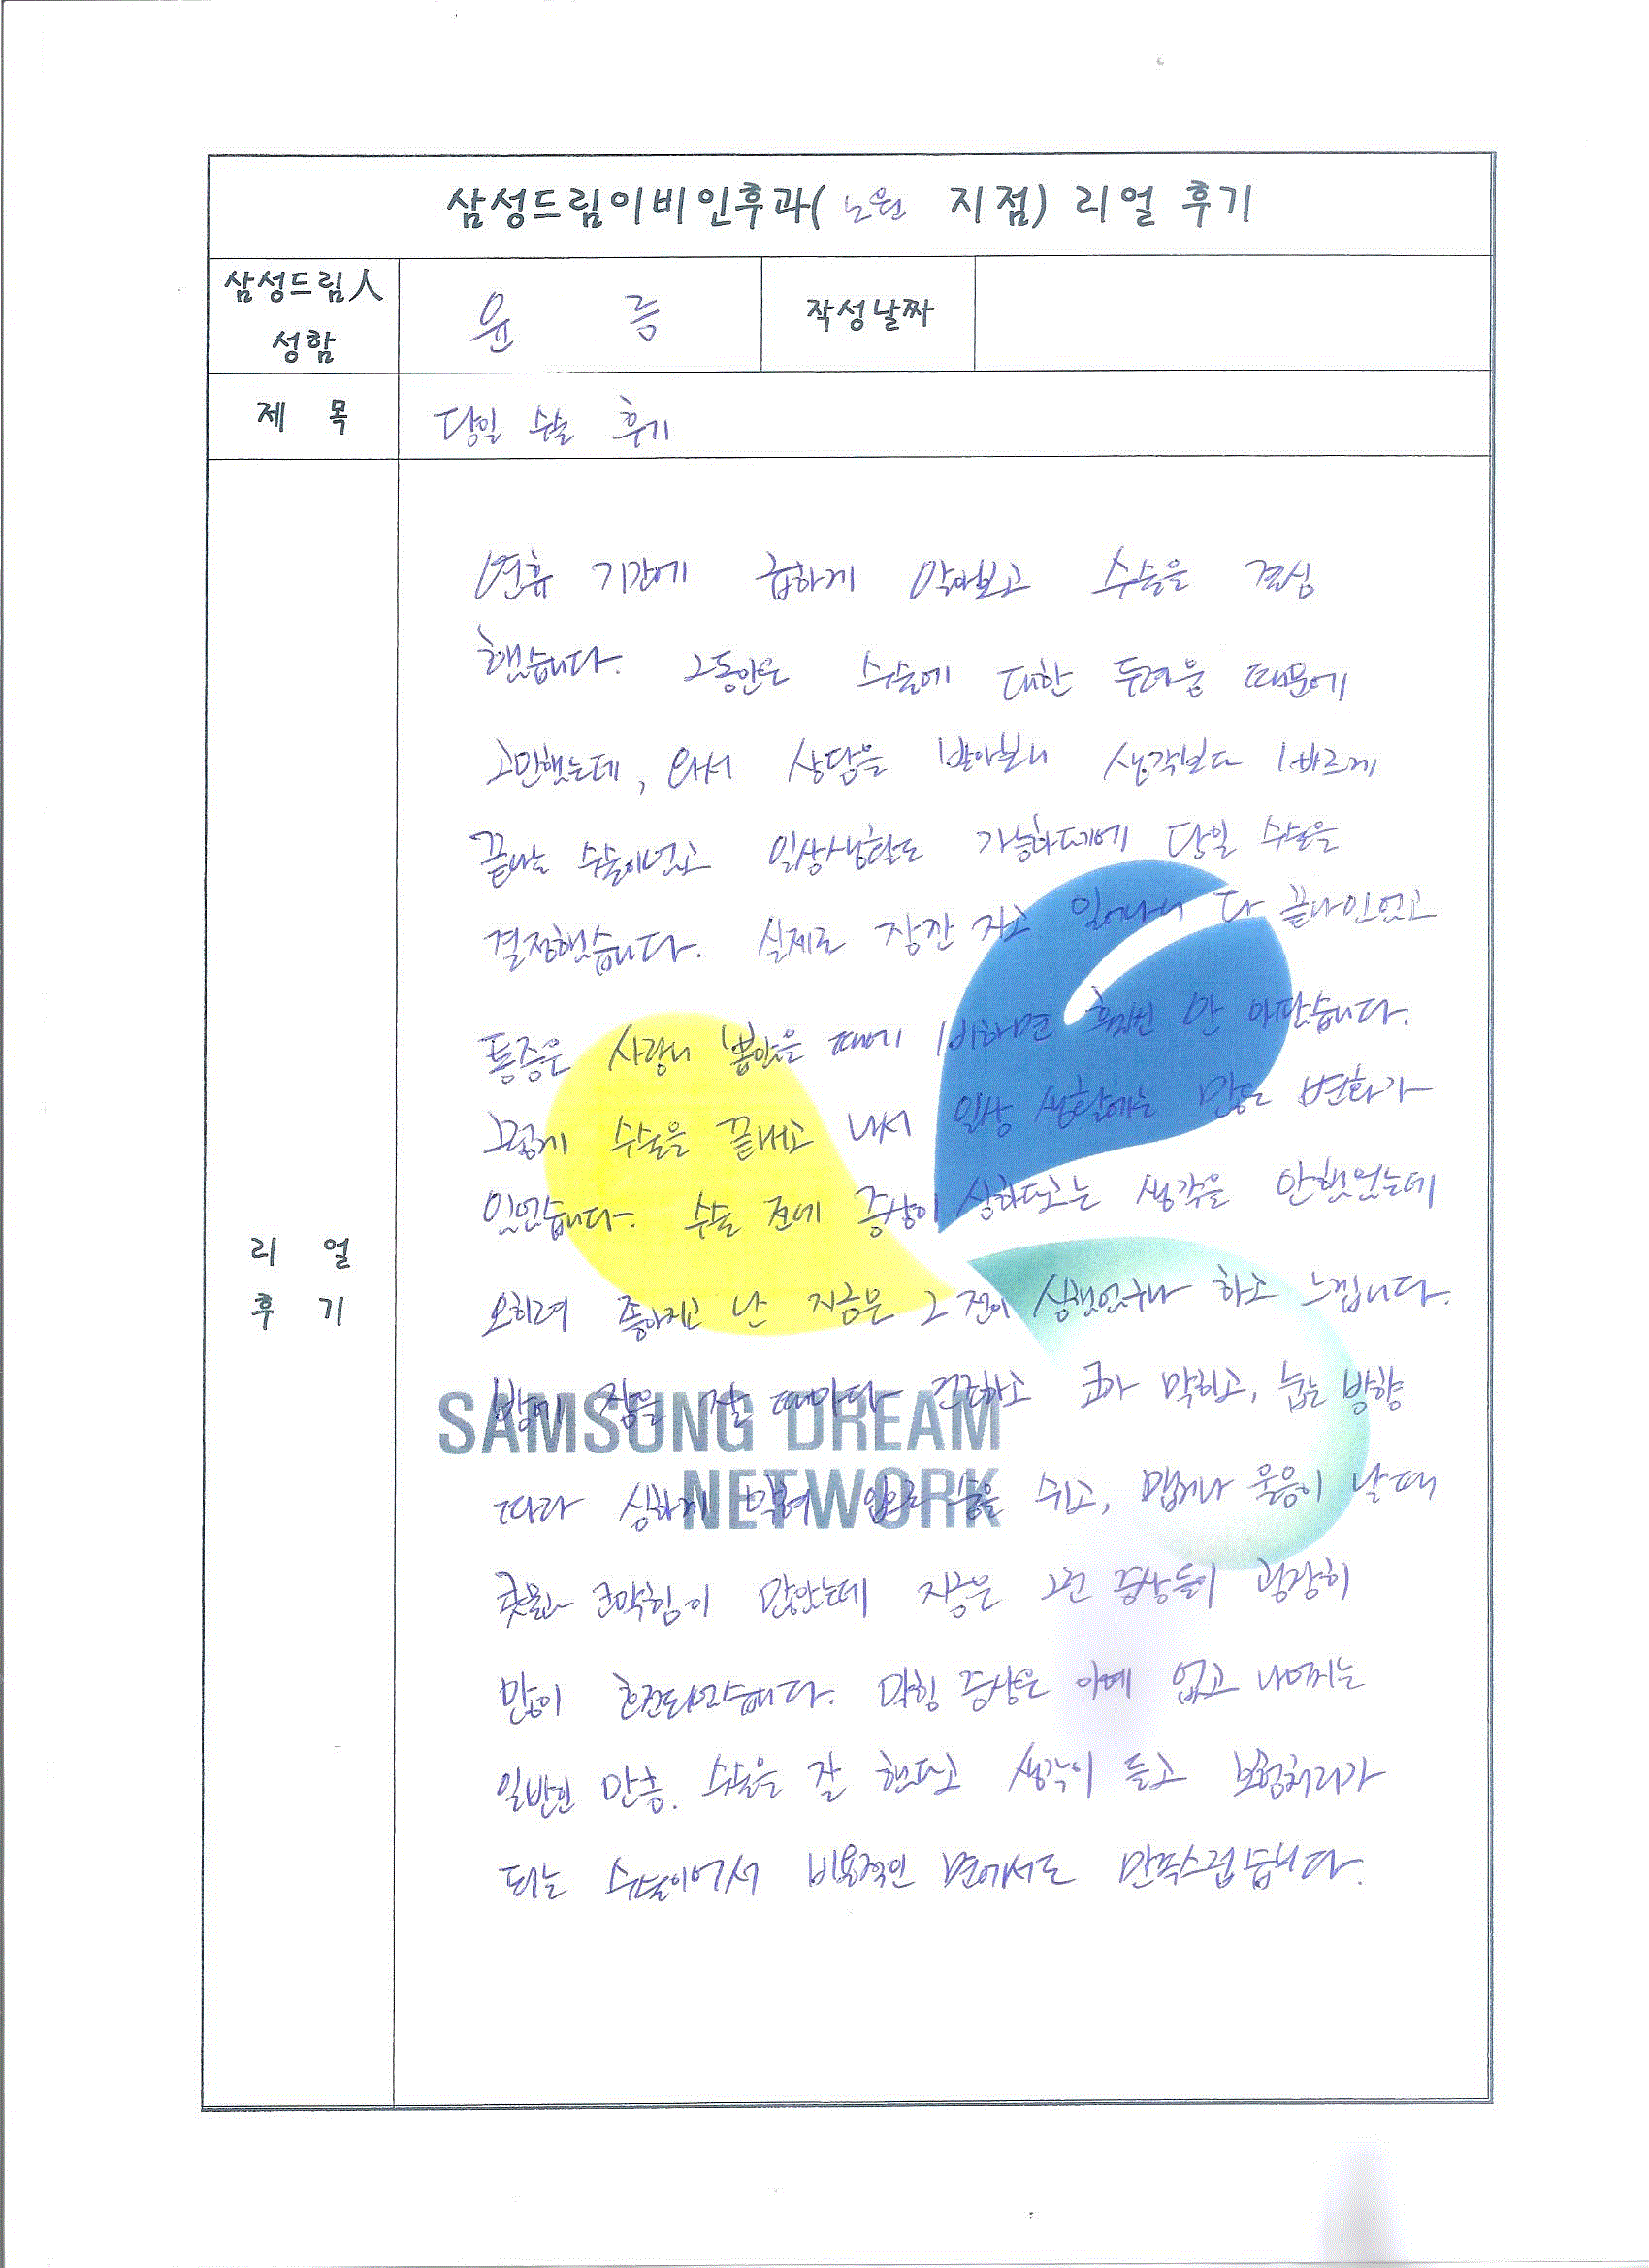 삼성드림이비인후과( 노원 지점) 리얼 후기
삼성드림人 성함
윤 름
작성날짜
제 목
당일 수술 후기
리 얼 후 기
연휴 기간에 급하게 알아보고 수술을 결심
했습니다. 그동안은 수술에 대한 두려움 때문에
고민했는데, 와서 상담을 받아보니 생각보다 빠르게
끝나는 수술이였고 일상생활도 가능하다기에 당일 수술을
결정했습니다. 실제로 잠깐 자고 일어나니 다 끝나있었고
통증은 사랑니 뽑았을 때에 비하면 훨씬 안 아팠습니다.
그렇게 수술을 끝내고 나서 일상 생활에는 많은 변화가
있었습니다. 수술 전에 증상이 심하다고는 생각을 안했었는데
오히려 좋아지고 난 지금은 그 전이 심했었구나 하고 느낍니다.
밤에 잠을 잘 때마다 건조하고 코가 막히고, 눕는 방향
따라 심하게 막혀 입으로 숨을 쉬고, 맵거나 울음이 날 때
콧물과 코막힘이 많았는데 지금은 그런 증상들이 굉장히
많이 호전되었습니다. 막힘 증상은 아예 없고 나머지는
일반인 만큼. 수술을 잘 했다고 생각이 들고 보험처리가
되는 수술이어서 비용적인 면에서도 만족스럽습니다.
SAMSUNG DREAM
NETWORK